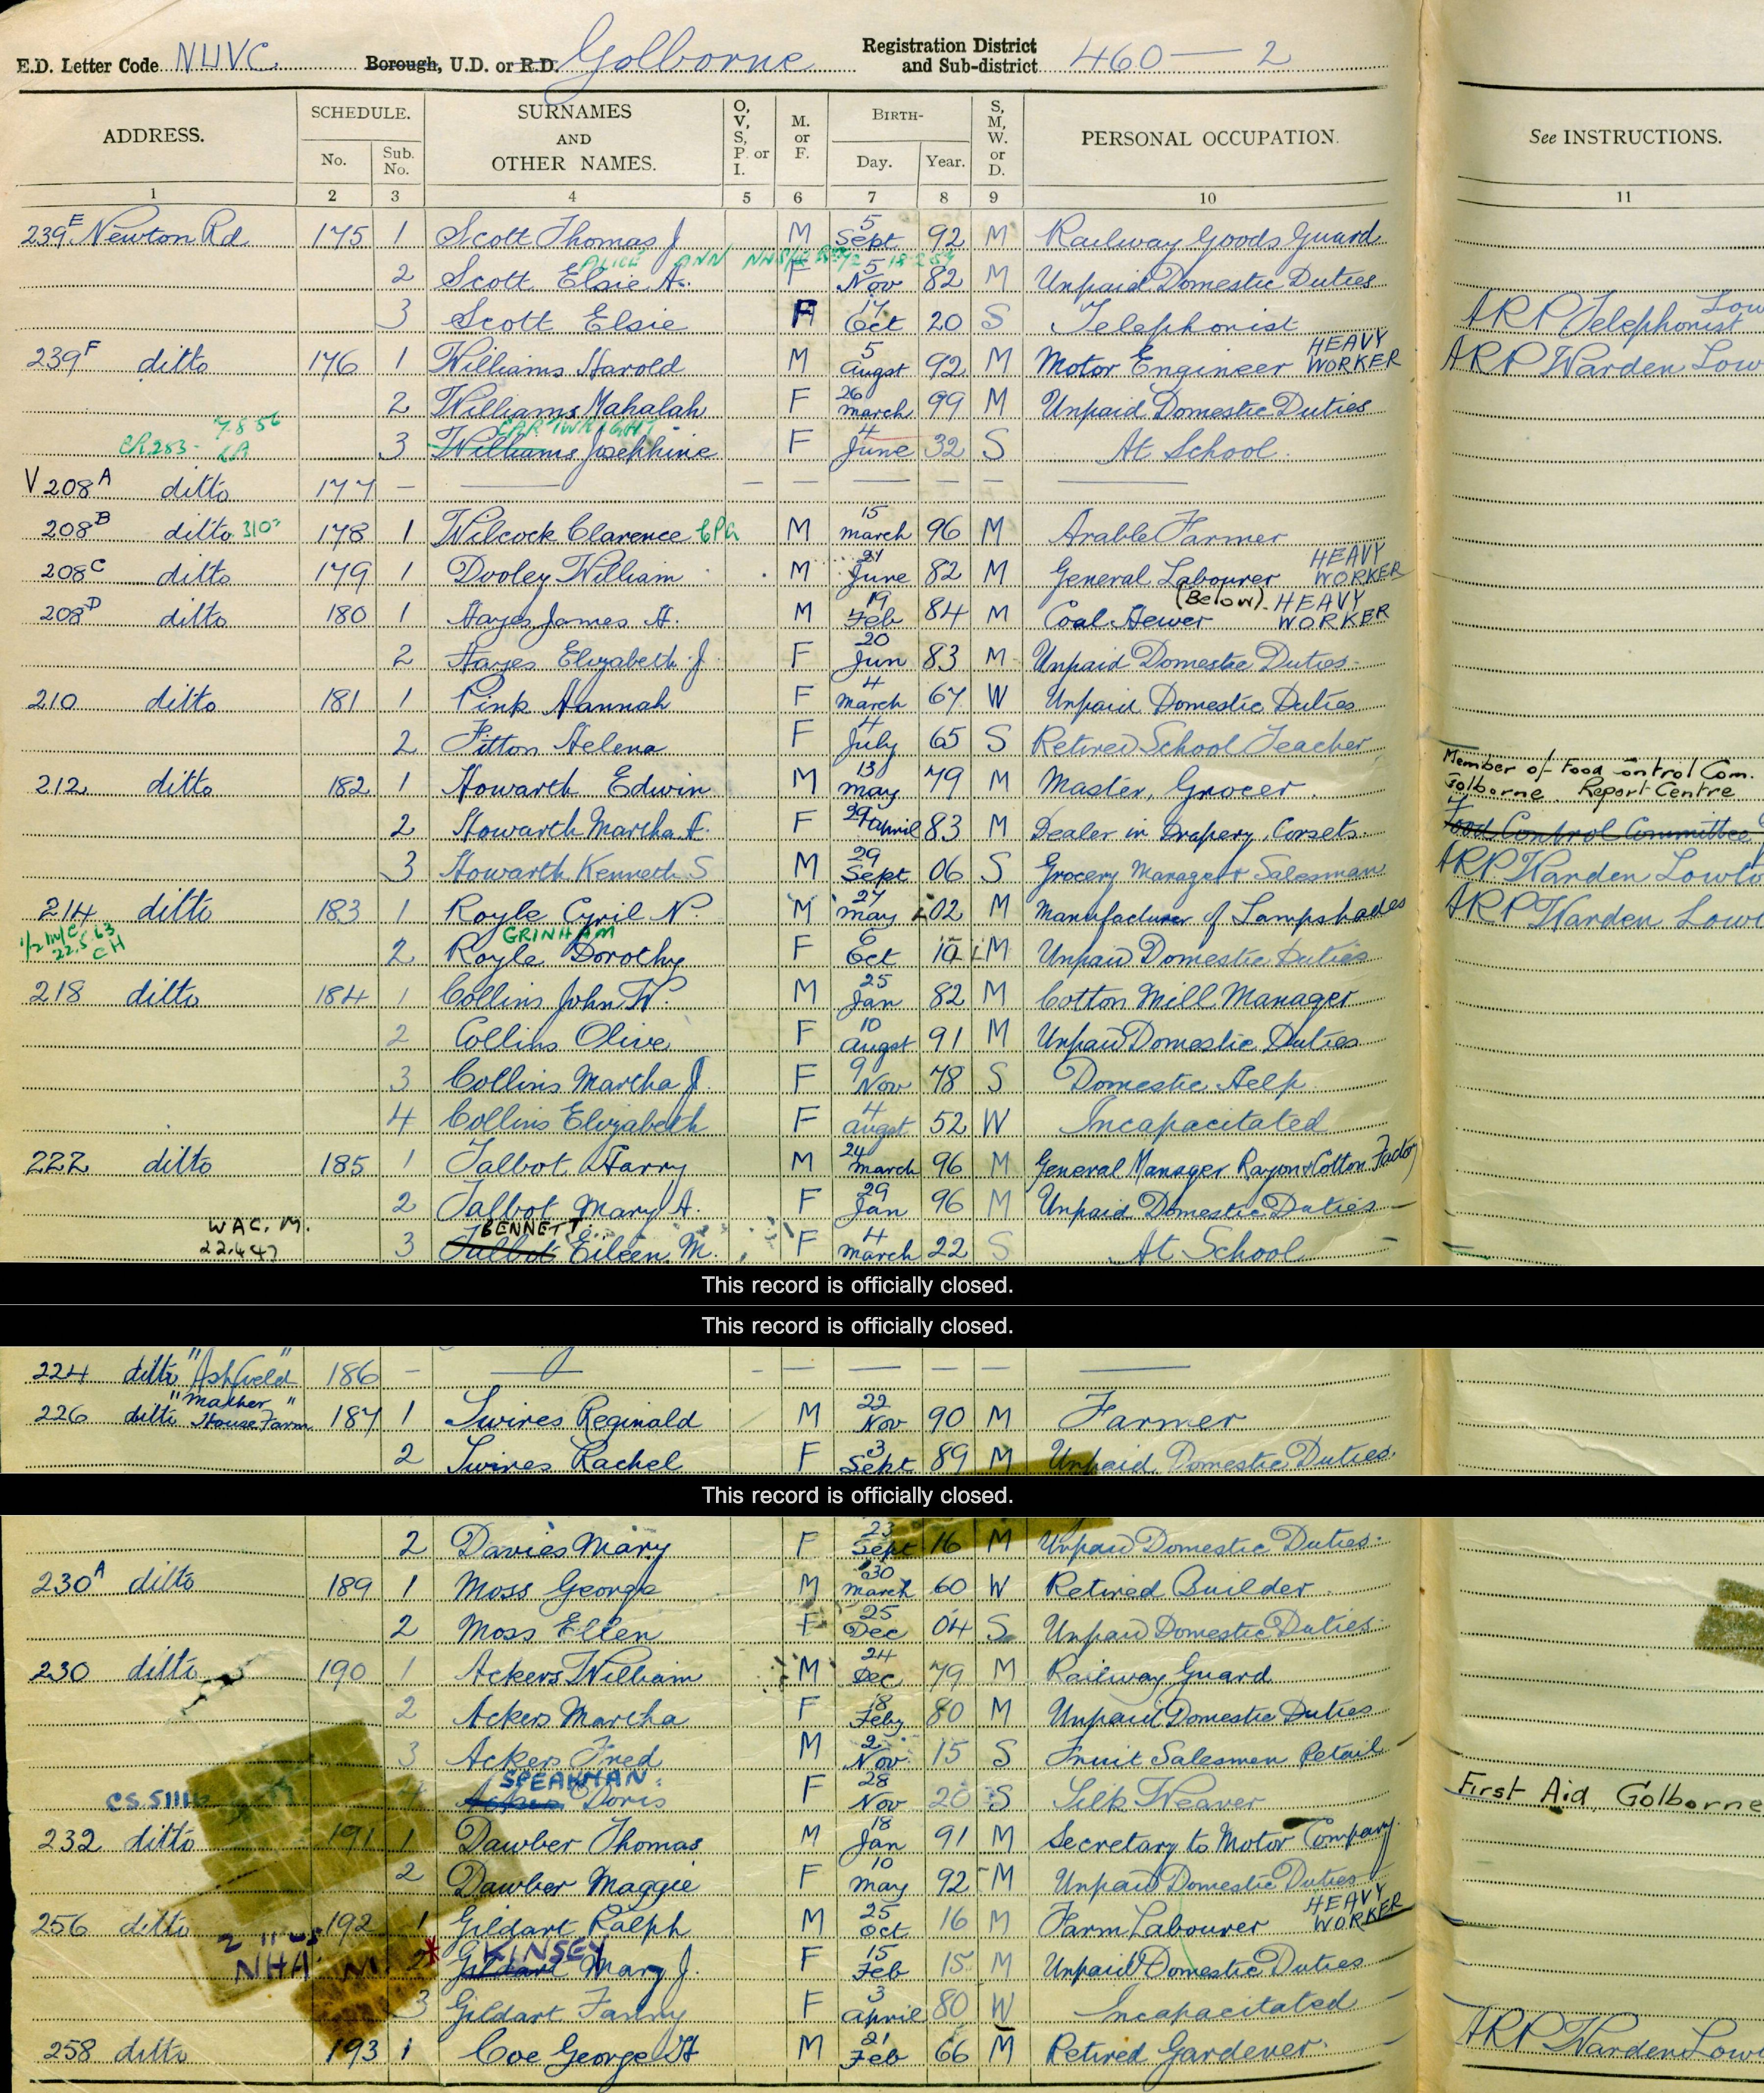 E.D. Letter Code NUVC Borough, U.D. or R.D. Golborne Registration District and Sub-district 460 — 2
ADDRESS. SCHEDULE. No. Sub. No. SURNAMES AND OTHER NAMES. O, V, S, P. or I. M. or F. BIRTH- Day. Year. S, M, W. or D. PERSONAL OCCUPATION. See INSTRUCTIONS.
1 2 3 4 5 6 7 8 9 10 11
239E Newton Rd 175 1 Scott Thomas J M 5 Sept 92 M Railway Goods Guard
ALICE ANN
2 Scott Elsie A. F 5 Nov 82 M Unpaid Domestic Duties
3 Scott Elsie F 17 Oct 20 S Telephonist ARP Telephonist Low
239F ditto 176 1 Williams Harold M 5 Augst 92 M Motor Engineer HEAVY WORKER ARP Warden Low
2 Williams Mahalah F 26 March 99 M Unpaid Domestic Duties
7.8.56 CARTWRIGHT
CR283- 3 Williams Josephine F 4 June 32 S At School
V 208A ditto 177 — — — — — — — —
208B ditto 178 1 Wilcock Clarence M 15 March 96 M Arable Farmer
208C ditto 179 1 Dooley William M 21 June 82 M General Labourer HEAVY WORKER
208D ditto 180 1 Hayes James H. M 19 Feb 84 M Coal Hewer (Below) HEAVY WORKER
2 Hayes Elizabeth J F 20 Jun 83 M Unpaid Domestic Duties
210 ditto 181 1 Pink Hannah F 4 March 67 W Unpaid Domestic Duties
2 Fitton Helena F 4 July 65 S Retired School Teacher
212 ditto 182 1 Howarth Edwin M 13 May 79 M Master, Grocer Member of Food Control Com. Golborne Report Centre
2 Howarth Martha A. F 29 April 83 M Dealer in Drapery, Corsets Food Control Committee
3 Howarth Kenneth S M 29 Sept 06 S Grocery Manager & Salesman ARP Warden Lowto
214 ditto 183 1 Royle Cyril N. M 27 May 02 M Manufacturer of Lampshades ARP Warden Lowt
22.5.63 CH GRINHAM
2 Royle Dorothy F Oct 10 M Unpaid Domestic Duties
218 ditto 184 1 Collins John W. M 25 Jan 82 M Cotton Mill Manager
2 Collins Olive F 10 Augst 91 M Unpaid Domestic Duties
3 Collins Martha J F 9 Nov 78 S Domestic Help
4 Collins Elizabeth F 4 Augst 52 W Incapacitated
222 ditto 185 1 Talbot Harry M 24 March 96 M General Manager Rayon & Cotton Factory
2 Talbot Mary A. F 29 Jan 96 M Unpaid Domestic Duties
WAC. M. BENNETT
22.4.47 3 Talbot Eileen M. F 4 March 22 S At School
This record is officially closed.
This record is officially closed.
224 ditto "Ashfield" 186 - — - — — — — —
226 ditto "Mather House Farm" 187 1 Swires Reginald M 22 Nov 90 M Farmer
2 Swires Rachel F 3 Sept 89 M Unpaid Domestic Duties
This record is officially closed.
2 Davies Mary F 23 Sept 16 M Unpaid Domestic Duties
230A ditto 189 1 Moss George M 30 March 60 W Retired Builder
2 Moss Ellen F 25 Dec 04 S Unpaid Domestic Duties
230 ditto 190 1 Ackers William M 24 Dec 79 M Railway Guard
2 Ackers Martha F 18 Feby 80 M Unpaid Domestic Duties
3 Ackers Fred M 2 Nov 15 S Fruit Salesman Retail
SPEAKMAN
CS 51116 4 Ackers Doris F 28 Nov 20 S Silk Weaver First Aid, Golborne
232 ditto 191 1 Dawber Thomas M 18 Jan 91 M Secretary to Motor Company
2 Dawber Maggie F 10 May 92 M Unpaid Domestic Duties
256 ditto 192 1 Gildart Ralph M 25 Oct 16 M Farm Labourer HEAVY WORKER
KINSEY
NHA M 2 Gildart Mary J. F 15 Feb 15 M Unpaid Domestic Duties
3 Gildart Fanny F 3 April 80 W Incapacitated
258 ditto 193 1 Coe George H M 21 Feb 66 M Retired Gardener ARP Warden Low